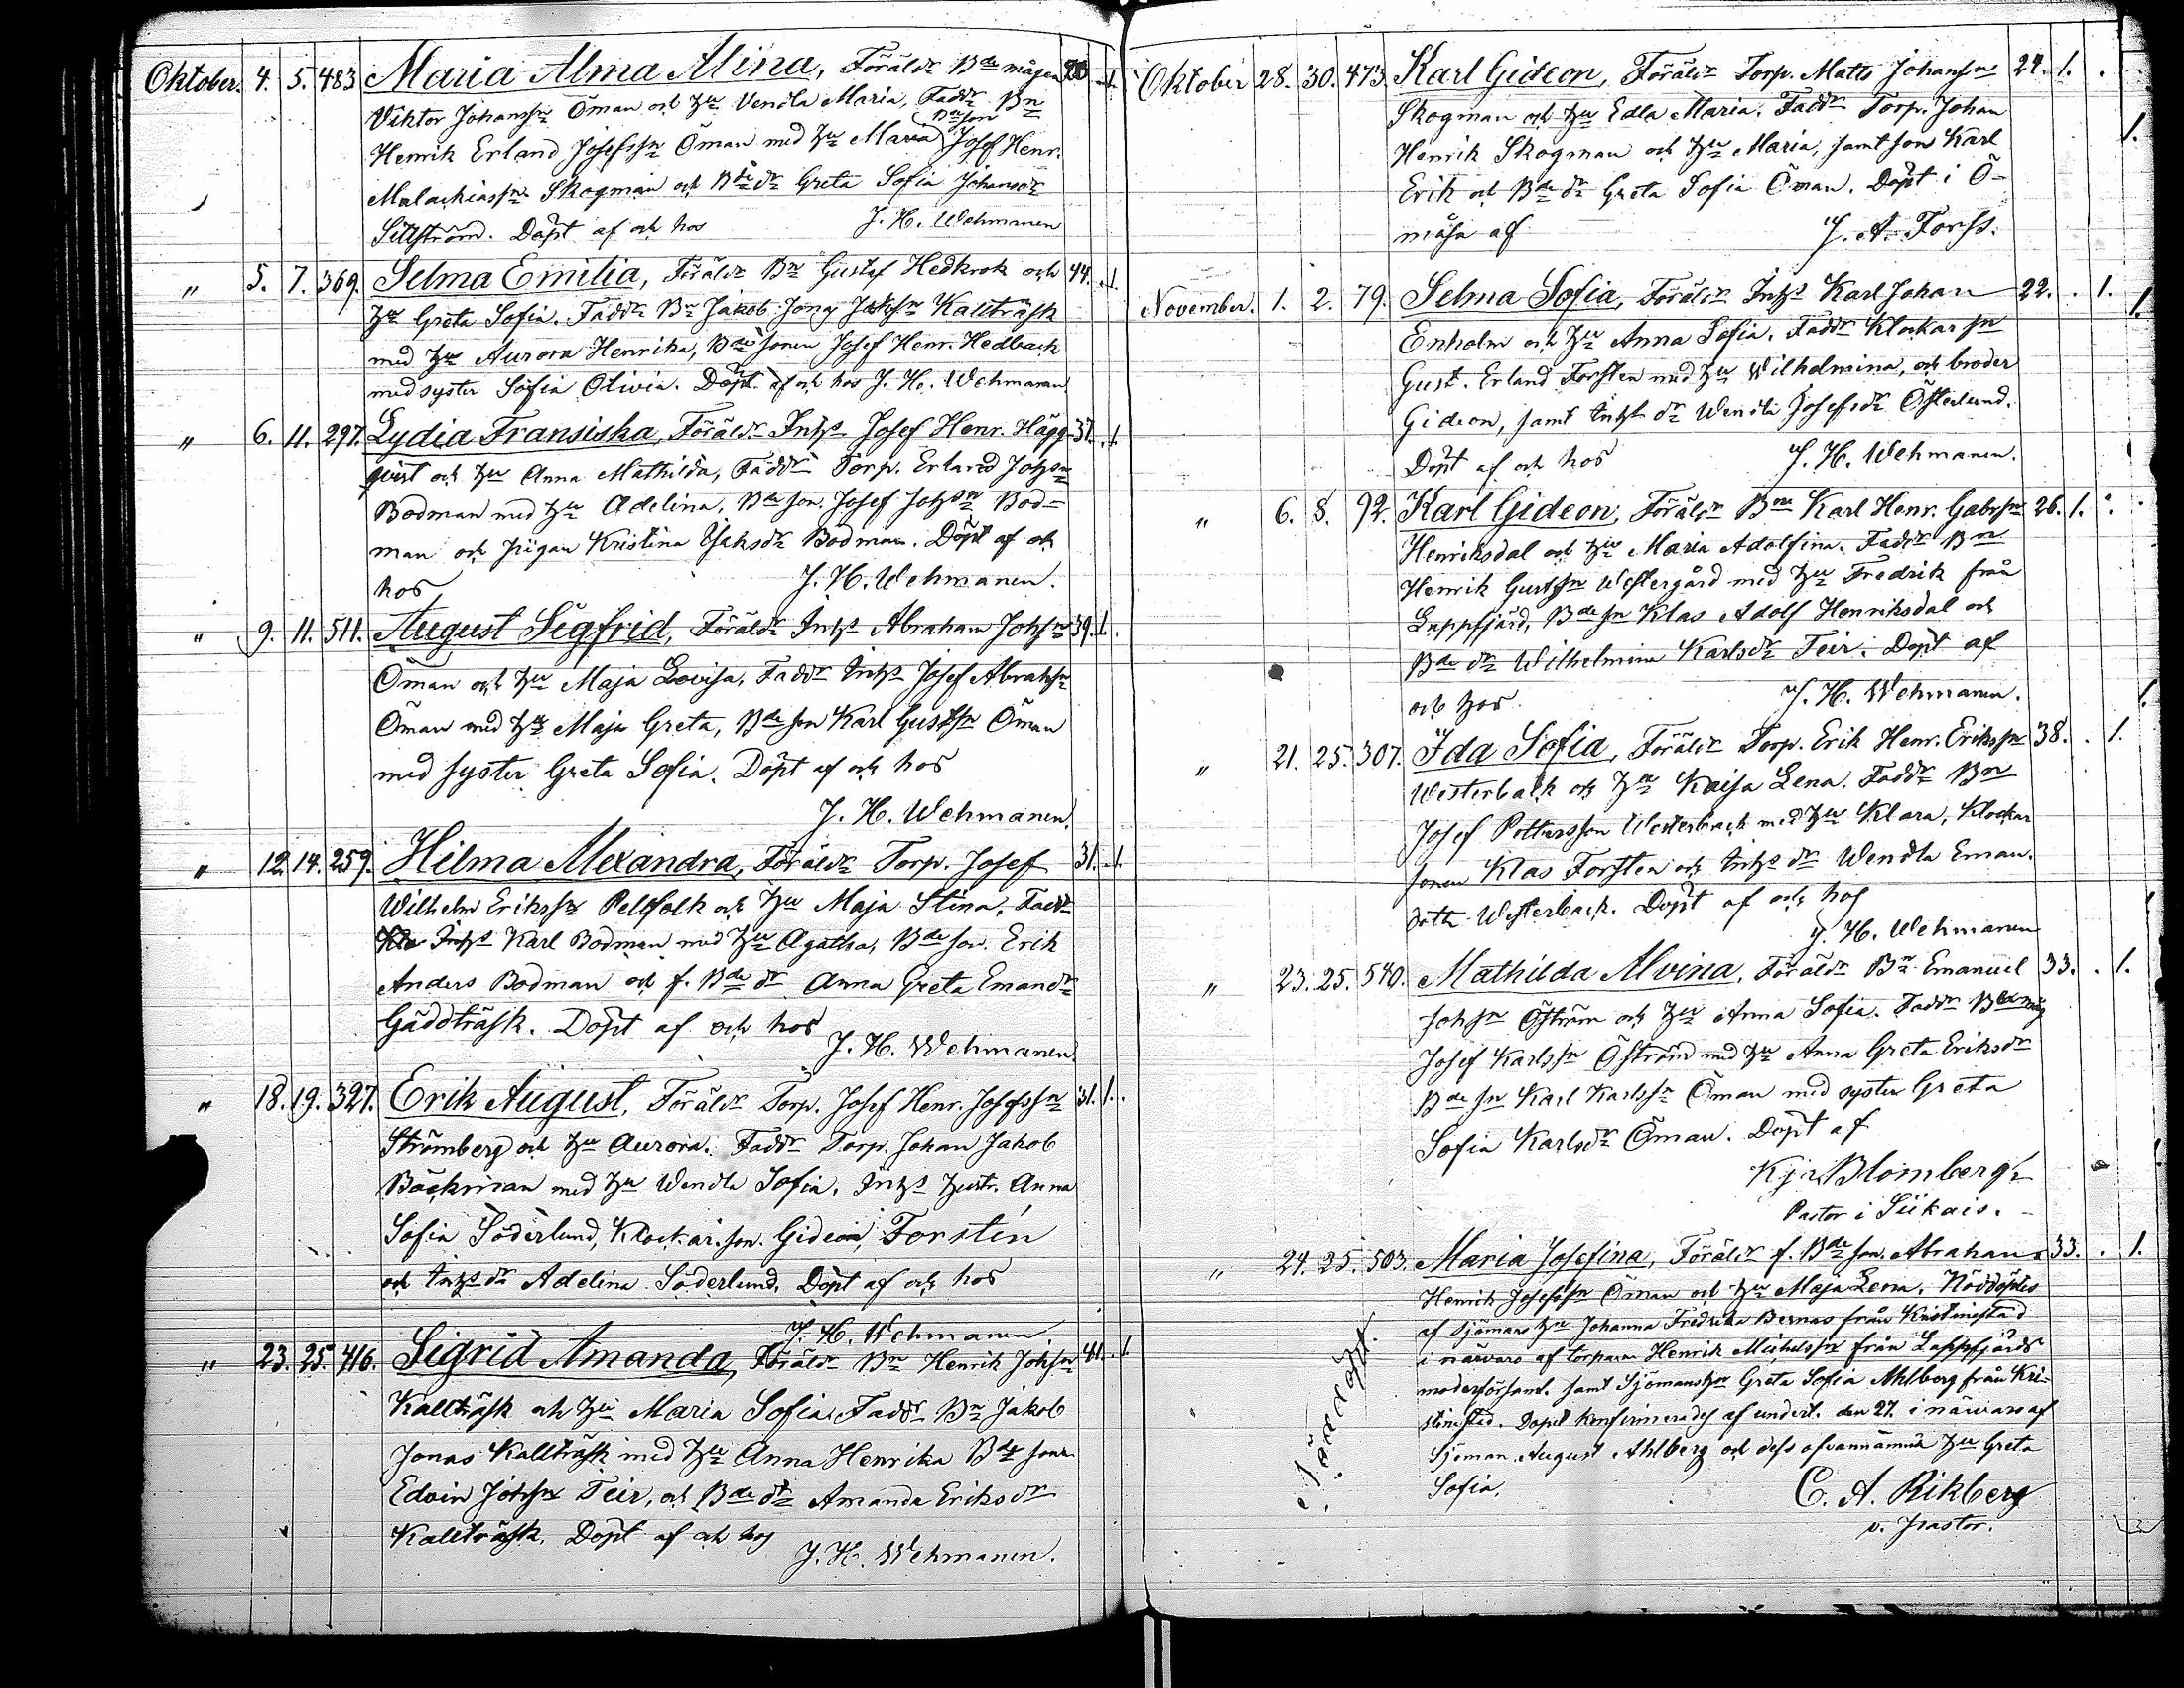 Oktober. 4. 5. 483 Maria Alma Alina, Föräldr Bde mågen 20 .1.
Viktor Johansn Öman och hu Vendla Maria, Faddr Bn
Henrik Erland Josefssn Öman med hu Maria, Bn son Josef Henr.
Malachiassn Skogman och Bde dr Greta Sofia Johansdr
Sillström. Döpt af och hos J. H. Wehmanen
" 5. 7. 369. Selma Emilia, Föräldr Bn Gustaf Hedkrok och 44. .1.
hu Greta Sofia. Faddr Bn Jakob Kallträsk
med hu Aurora Henrika, Bde sonen Josef Henr. Hedback
med syster Sofia Olivia. Döpt af och hos J. H. Wehmanen
" 6. 11. 297. Lydia Fransiska, Föräldr Inhs Josef Henr. Hägg- 37. .1.
qvist och hu Anna Mathilda, Faddr Torp. Erland Johsn
Bodman med hu Adelina, Bde son Josef Johsn Bod-
man och pigan Kristina Isaksdr Bodman. Döpt af och
hos J. H. Wehmanen.
" 9. 11. 511. August Sigfrid, Föräldr Inhs Abraham Johsn 39. 1.
Öman och hu Maja Lovisa, Faddr Inhs Josef Abrahsn
Öman med hu Maja Greta, Bde son Karl Gustsn Öman
med syster Greta Sofia. Döpt af och hos
J. H. Wehmanen.
" 12. 14. 259. Hilma Alexandra, Föräldr Torp. Josef 31. .1.
Wilhelm Erikssn Pellfolk och hu Maja Stina, Faddr
Inhs Karl Bodman med hu Agatha, Bde son Erik
Anders Bodman och f. Bde dr Anna Greta Emandr
Gäddträsk. Döpt af och hos
J. H. Wehmanen
" 18. 19. 327. Erik August, Föräldr Torp. Josef Henr. Josefssn 31. 1.
Strömberg och hu Aurora. Faddr Torp. Johan Jakob
Bäckman med hu Wendla Sofia, Inhs hustr. Anna
Sofia Söderlund, Klockar. son. Gideon Forstén
och Inhs dr Adelina Söderlund. Döpt af och hos
J. H. Wehmanen.
" 23. 25. 416. Sigrid Amanda, Föräldr Bn Henrik Johsn 41. .1
Kallträsk och hu Maria Sofia. Faddr Bn Jakob
Jonas Kallträsk med hu Anna Henrika Bde sonen
Edvin Johsn Teir, och Bde dr Amanda Eriksdr
Kallträsk. Döpt af och hos
J. H. Wehmanen.
Oktober 28. 30. 473. Karl Gideon, Föräldr Torp. Matts Johanssn 24. 1. .
Skogman och hu Edla Maria. Faddr Torp. Johan
Henrik Skogman och hu Maria, samt son Karl 1.
Erik och Bde dr Greta Sofia Öman. Döpt i Ö-
måsa af J. A. Forss.
November. 1. 2. 79. Selma Sofia, Föräldr Inhs Karl Johan 22. . 1. 1.
Enholm och hu Anna Sofia. Faddr Klockar sn
Gust. Erland Forstén med hu Wilhelmina, och broder
Gideon, samt Inhs dr Wendla Josefsdr Österlund.
Döpt af och hos J. H. Wehmanen.
" 6. 8. 92. Karl Gideon, Föräldr Bn Karl Henr. Gabrsn 26. 1. .
Henriksdal och hu Maria Adolfina. Faddr Bn
Henrik Gustsn Westergård med hu Fredrik från
Lappfjärd, Bde sn Klas Adolf Henriksdal och
Bde dr Wilhelmina Karlsdr Teir. Döpt af
och hos J. H. Wehmanen. 1.
" 21. 25. 307. Ida Sofia, Föräldr Torp. Erik Henr. Erikssn 38. . 1.
Westerback och hu Kajsa Lena. Faddr Bn
Josef Pettersson Westerback med hu Klara, Klockar
sonen Klas Forstén och Inhs dr Wendla Eman.
dottr Westerback. Döpt af och hos
J. H. Wehmanen
" 23. 25. 540. Mathilda Alvina, Föräldr Bn Emanuel 33. . 1.
Johsn Öström och hu Anna Sofia. Faddr Bde måg
Josef Karlssn Öström med hu Anna Greta Eriksdr
Bde sn Karl Karlssn Öman med syster Greta
Sofia Karlsdr Öman. Döpt af
Blomberg
Pastor i Siikais.
" 24. 25. 503. Maria Josefina, Föräldr f. Bde son Abraham 33. . 1.
Henrik Josefssn Öman och hu Maja Lena. Nöddöptes
af sjömans hu Johanna Fredrika Bernas från Kristinestad
i närvaro af torparen Henrik Michelssn från Lappfjärds
moderförsaml. samt Sjömanshn Greta Sofia Ahlberg från Kri-
stinestad. Dopet konfirmerades af undert. den 27. i närvaro af
Sjöman August Ahlberg och dess ofvannämnda hu Greta
Sofia. C. A. Rikberg
v. pastor.
Nöddöpt.